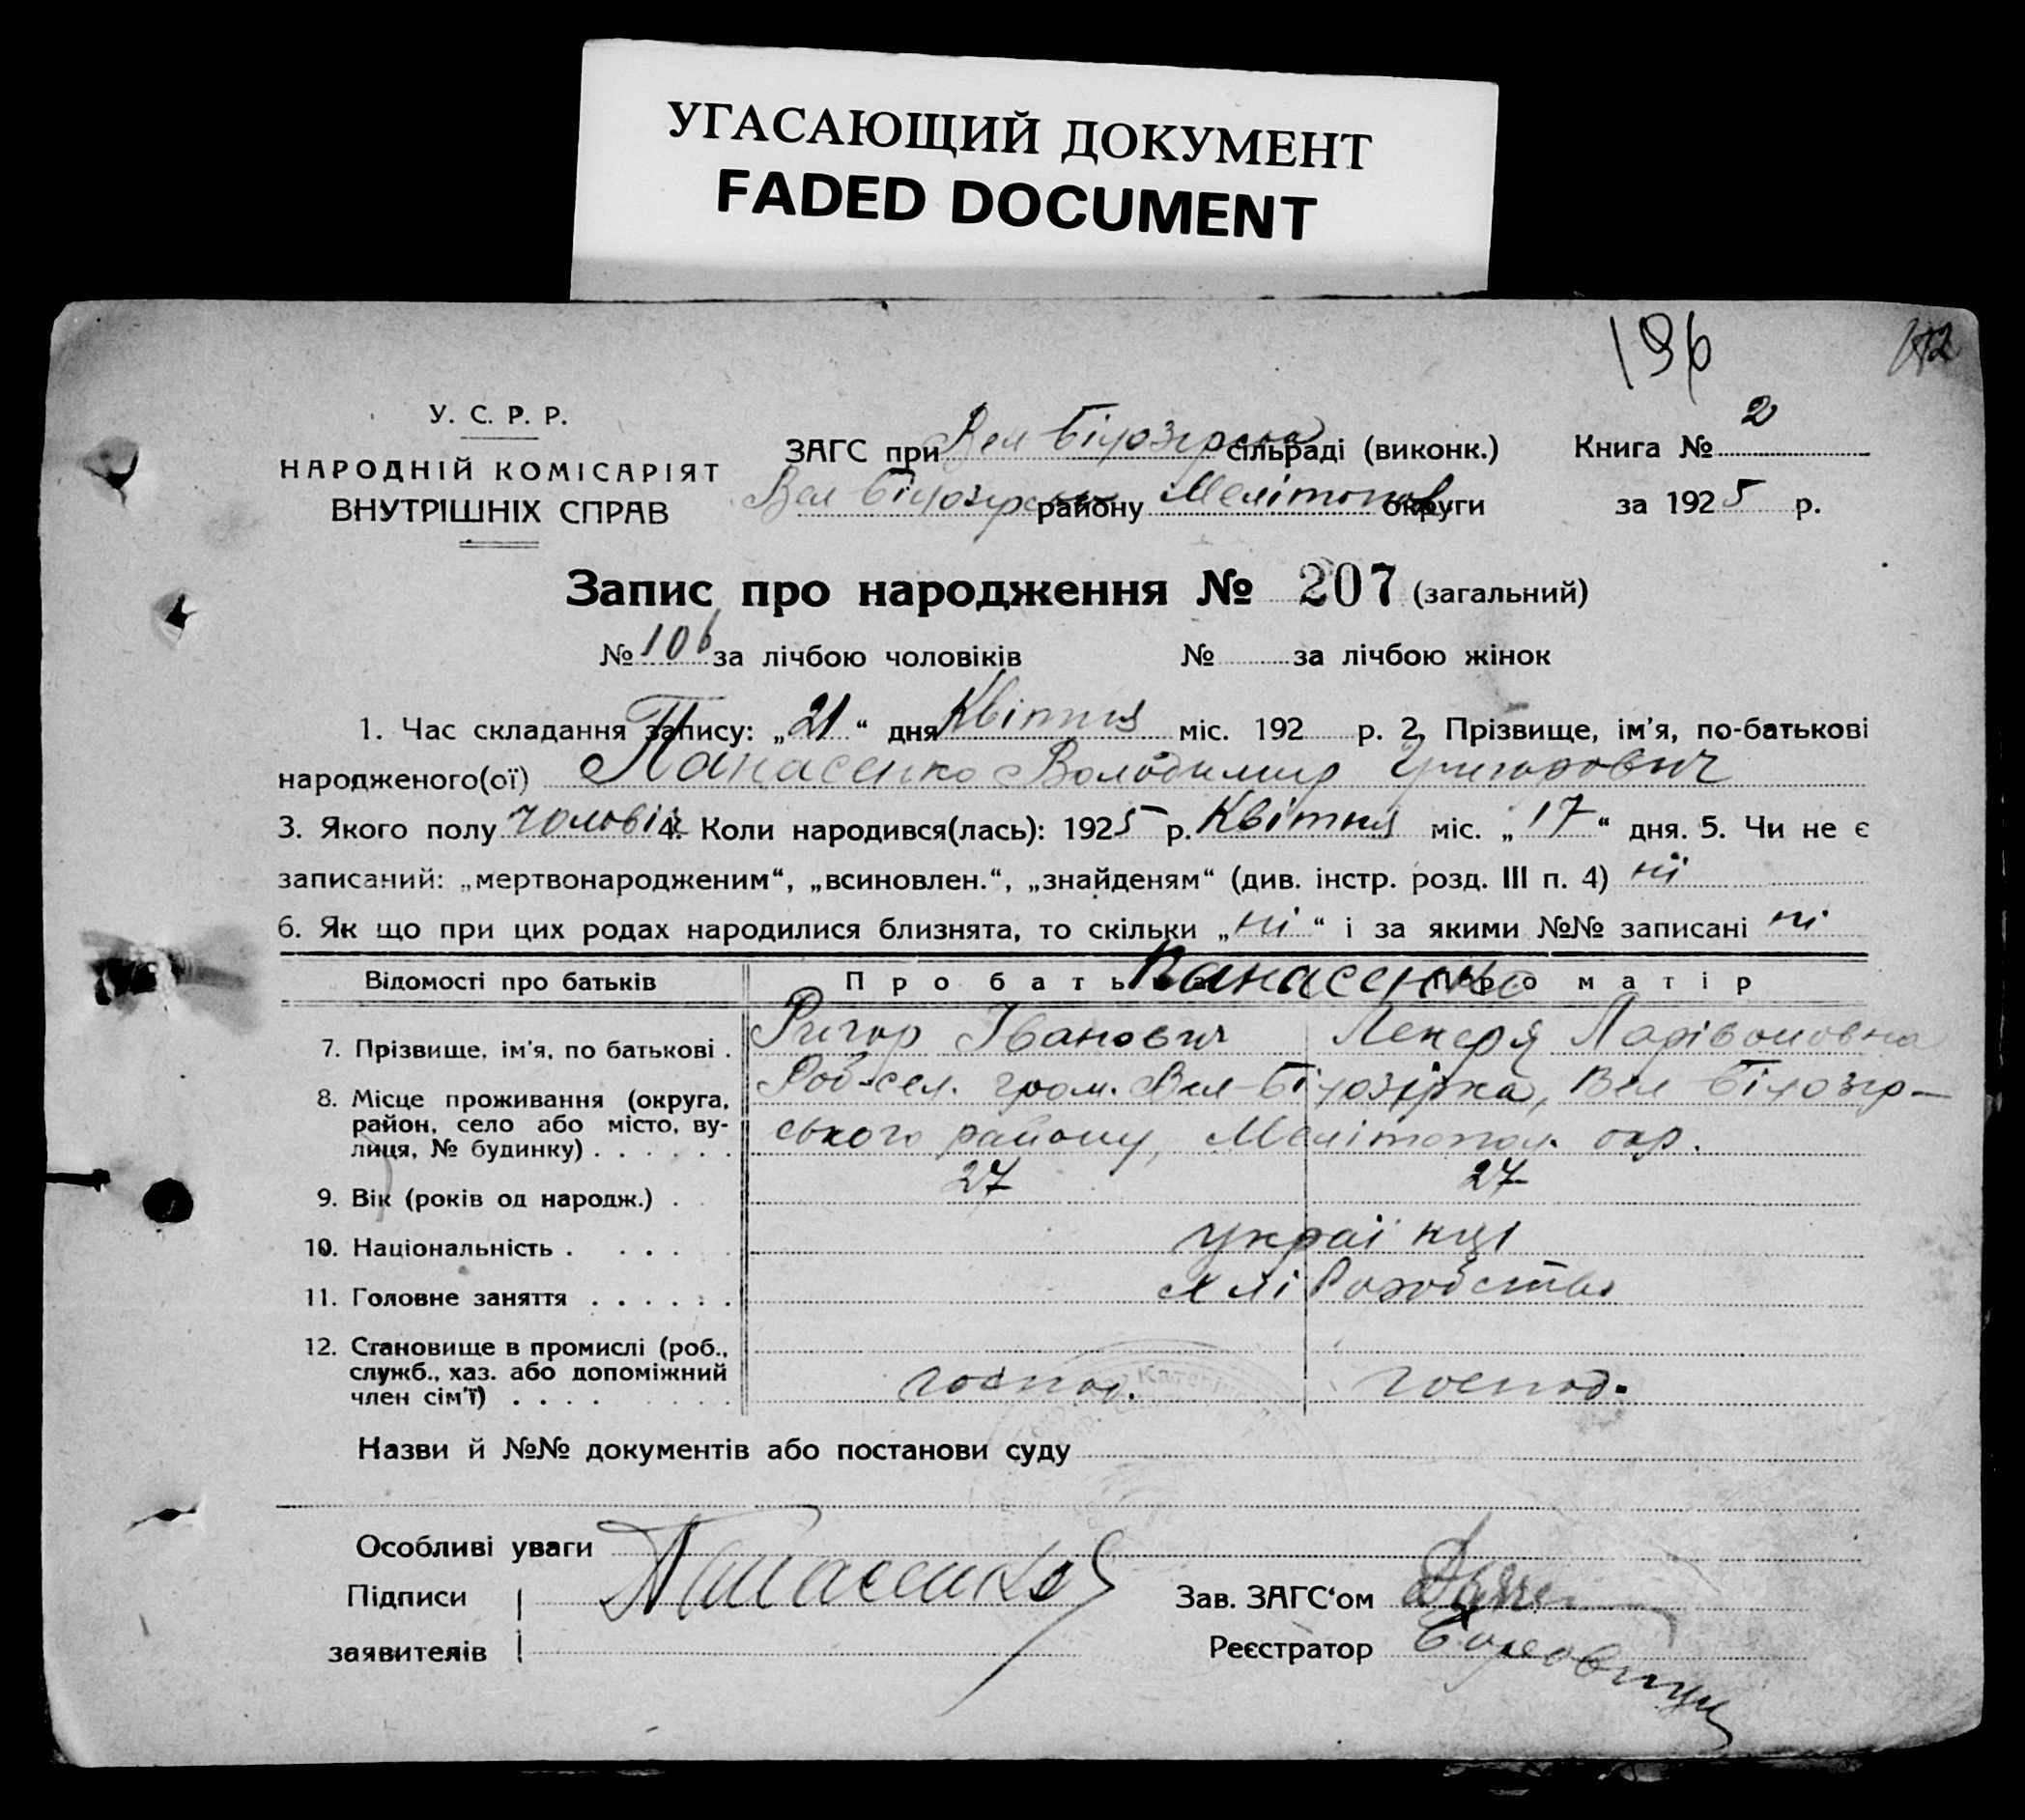 УГАСАЮЩИЙ ДОКУМЕНТ
FADED DOCUMENT
196
У. С. Р. Р.
НАРОДНІЙ КОМІСАРІЯТ
ВНУТРІШНІХ СПРАВ
ЗАГС при Вел Білозірськ сільраді (виконк.)
Вел Білозірськ району Мелітопол округи
Книга № 2
за 1925 р.
Запис про народження № 207 (загальний)
№ 106 за лічбою чоловіків № за лічбою жінок
1. Час складання запису: „21“ дня Квітня міс. 192 р. 2. Прізвище, ім’я, по-батькові
народженого(ої) Панасенко Володимир Григорович
3. Якого полу чоловік 4. Коли народився(лась): 1925 р. Квітня міс. „17“ дня. 5. Чи не є
записаний: „мертвонародженим“, „всиновлен.“, „знайденям“ (див. інстр. розд. III п. 4) ні
6. Як що при цих родах народилися близнята, то скільки „ні“ і за якими №№ записані ні
Відомості про батьків Про батька Про матір
Панасенко
7. Прізвище, ім’я, по батькові . Григор Іванович Лекеря Ларівоновна
8. Місце проживання (округа, район, село або місто, вулиця, № будинку) . . . . . . Роб-сел. гром. Вел-Білозірка, Вел Білозір-
ського району, Мелітопол. окр.
9. Вік (років од народж.) . 27 27
10. Національність . . . . українці
11. Головне заняття . . . . . . хліборобство
12. Становище в промислі (роб., служб., хаз. або допоміжний член сім’ї) . . . . господ. господ.
Назви й №№ документів або постанови суду
Особливі уваги
Підписи
заявителів
Панасенко
Зав. ЗАГС‘ом
Реєстратор